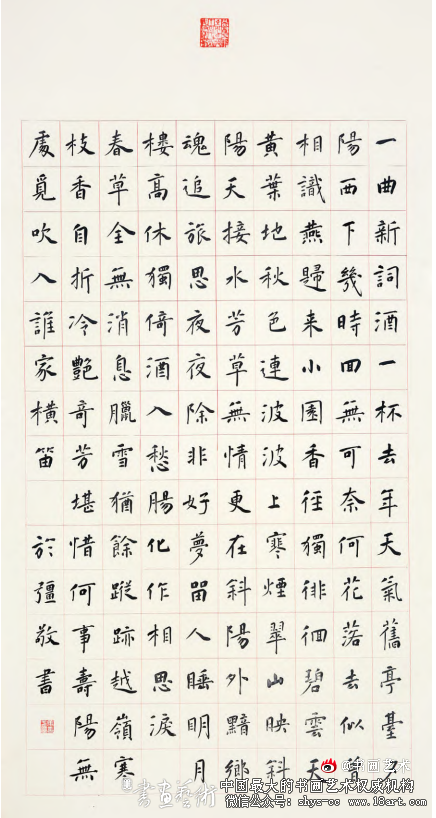 一曲新詞酒一杯去年天氣舊亭臺夕
陽西下幾時回無可奈何花落去似曾
相識燕歸來小園香徑獨徘徊碧雲天
黃葉地秋色連波波上寒煙翠山映斜
陽天接水芳草無情更在斜陽外黯鄉
魂追旅思夜夜除非好夢留人睡明月
樓高休獨倚酒入愁腸化作相思淚
春草全無消息臘雪猶餘蹤跡越嶺寒
枝香自折冷艷奇芳堪惜何事壽陽無
處覓吹入誰家橫笛 於彊敬書
书画艺术
書画藝術
中国最大的书画艺术权威机构
微信公众号：shys-cc www.18art.com